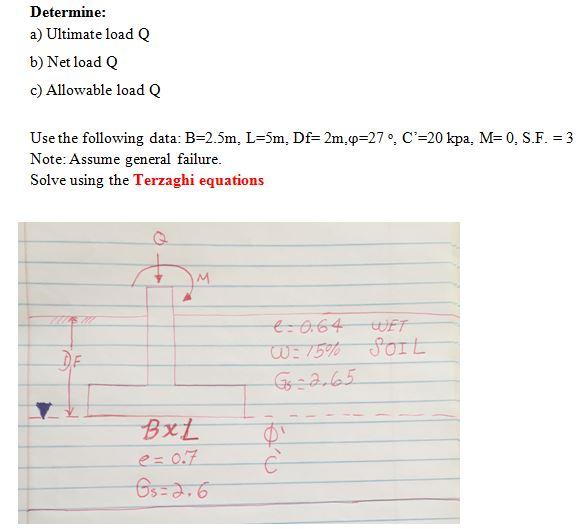 Determine:
a) Ultimate load Q
b) Net load Q
c) Allowable load Q
Use the following data: B=2.5m, L=5m, Df= 2m,φ=27 º, C’=20 kpa, M= 0, S.F. = 3
Note: Assume general failure.
Solve using the Terzaghi equations
Q
M
e=0.64 WET
W=15% SOIL
Gs=2.65
DF
BxL
e=0.7
Gs=2.6
ϕ'
C'